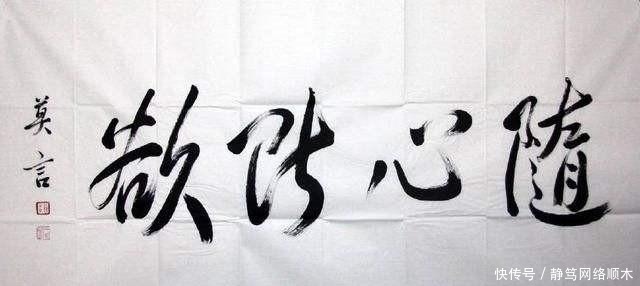 随心所欲
莫言
快传号／静笃网络顺木